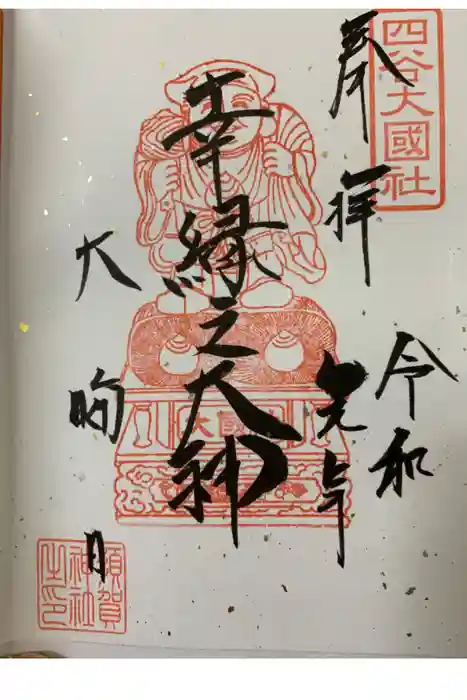 四谷大國社
奉拝
令和
元年
幸縁之大神
大晦日
須賀
神社
之印